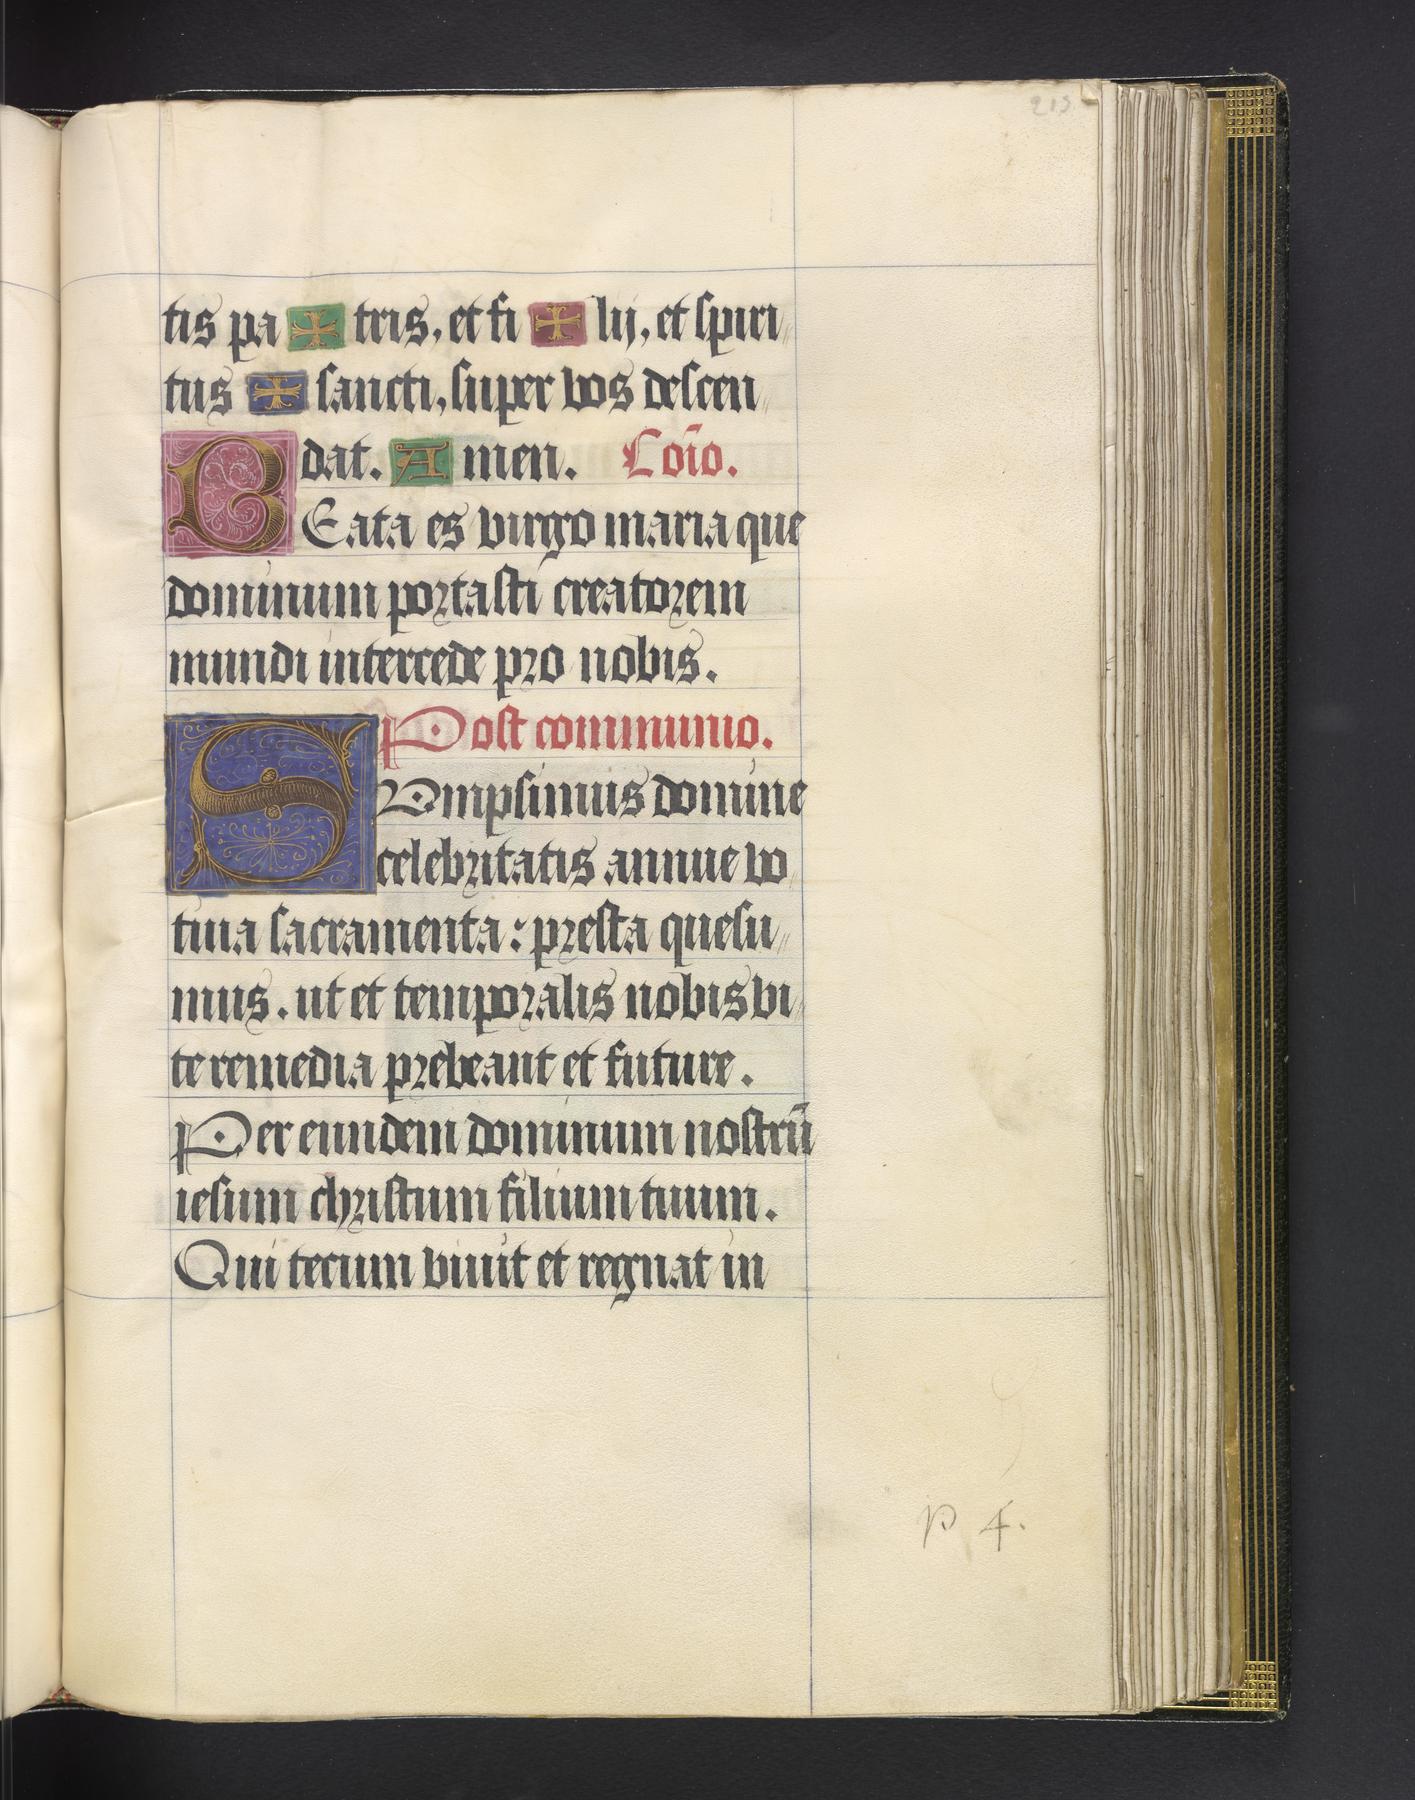 213.
tis pa ✠ tris, et fi ✠ lij, et spiri
tus ✠ sancti, super vos descen
dat. Amen. Cōīo.
BEata es virgo maria que
dominum portasti creatorem
mundi intercede pro nobis.
Post communio.
SVmpsimus domine
celebritatis annue vo
tiua sacramenta : presta quesu
mus. ut et temporalis nobis vi
te remedia prebeant et future.
Per eundem dominum nostrū
iesum christum filium tuum.
Qui tecum viuit et regnat in
p 4.